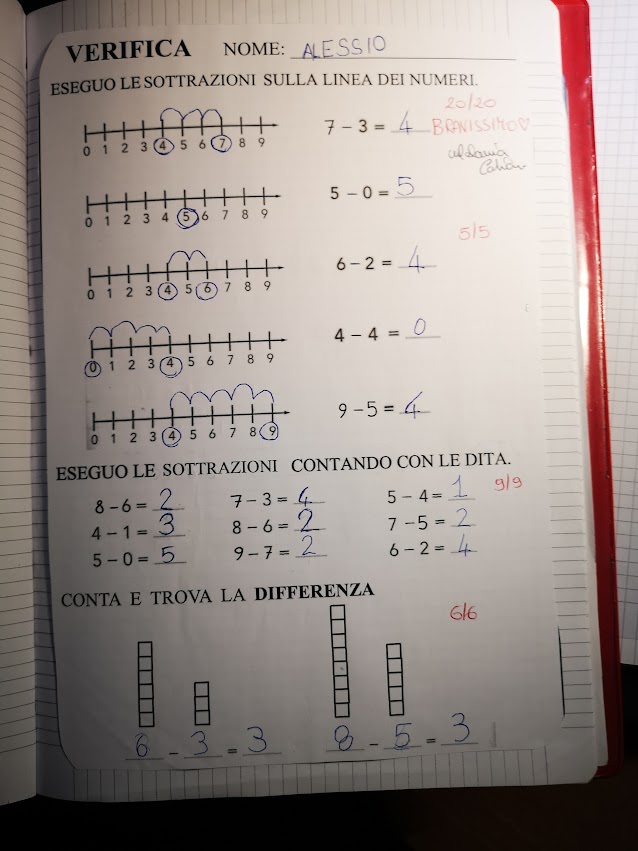 VERIFICA NOME: ALESSIO
ESEGUO LE SOTTRAZIONI SULLA LINEA DEI NUMERI.
20/20
BRAVISSIMO♡
0 1 2 3 4 5 6 7 8 9
7 – 3 = 4
0 1 2 3 4 5 6 7 8 9
5 – 0 = 5
5/5
0 1 2 3 4 5 6 7 8 9
6 – 2 = 4
0 1 2 3 4 5 6 7 8 9
4 – 4 = 0
0 1 2 3 4 5 6 7 8 9
9 – 5 = 4
ESEGUO LE SOTTRAZIONI CONTANDO CON LE DITA.
9/9
8 – 6 = 2 7 – 3 = 4 5 – 4 = 1
4 – 1 = 3 8 – 6 = 2 7 – 5 = 2
5 – 0 = 5 9 – 7 = 2 6 – 2 = 4
CONTA E TROVA LA DIFFERENZA
6/6
6 - 3 = 3 8 - 5 = 3